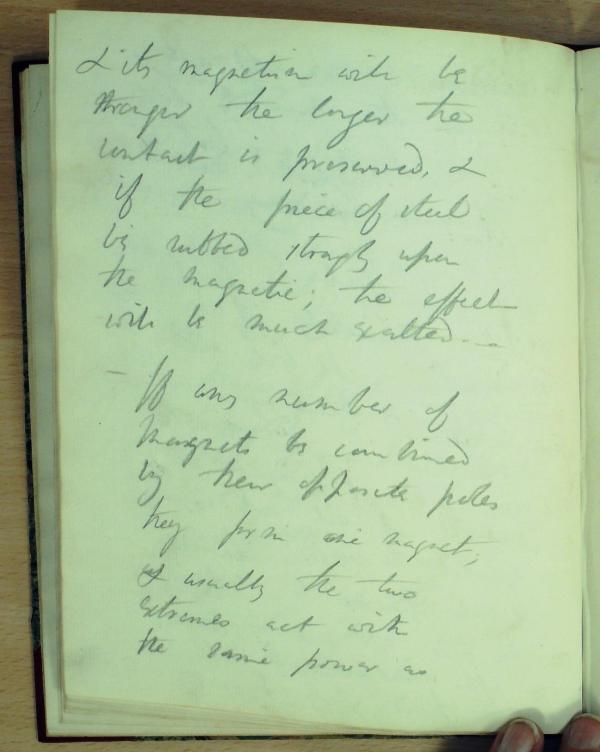 & its magnetism will be
stronger the longer the
contact is preserved, &
if the piece of steel
be rubbed strongly upon
the magnetic; the effect
will be much exalted. —
— If any number of
Magnets be combined
by their opposite poles
they form one magnet;
& usually the two
extremes act with
the same power as